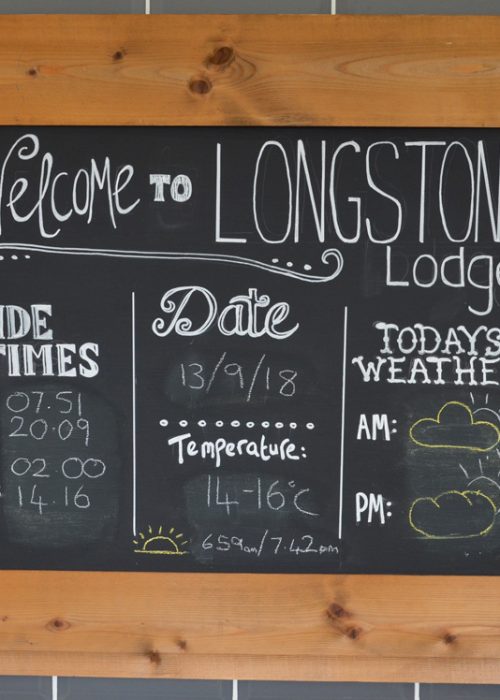 Welcome to LONGSTON
Lodge
IDE
TIMES
07.51
20.09
02.00
14.16
Date
13/9/18
Temperature:
14-16°C
659am/7.42pm
TODAYS
WEATHE
AM:
PM: